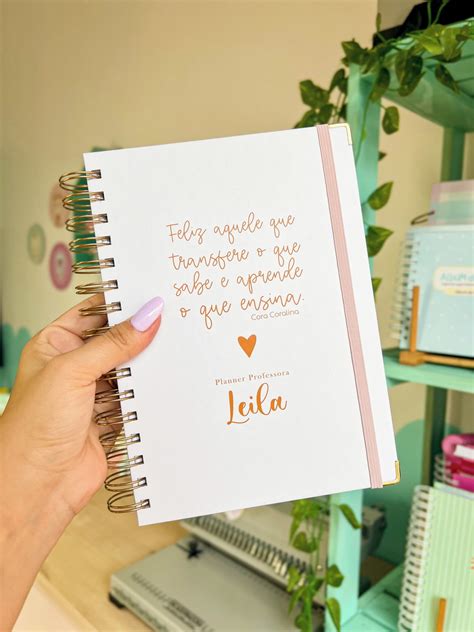 Feliz aquele que
transfere o que
sabe e aprende
o que ensina.
Cora Coralina
Planner Professora
Leila